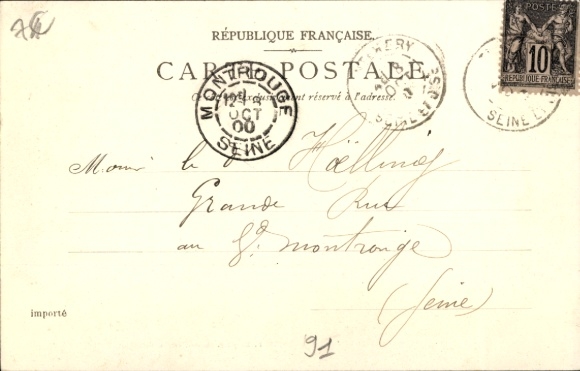 RÉPUBLIQUE FRANÇAISE.
CARTE POSTALE
Ce côté est exclusivement réservé à l'adresse.
MONTROUGE
OCT
00
SEINE
POSTE
10
REPUBLIQUE FRANÇAISE
SEINE ET
Grande Rue
au Gd montrouge
(Seine)
importé
91